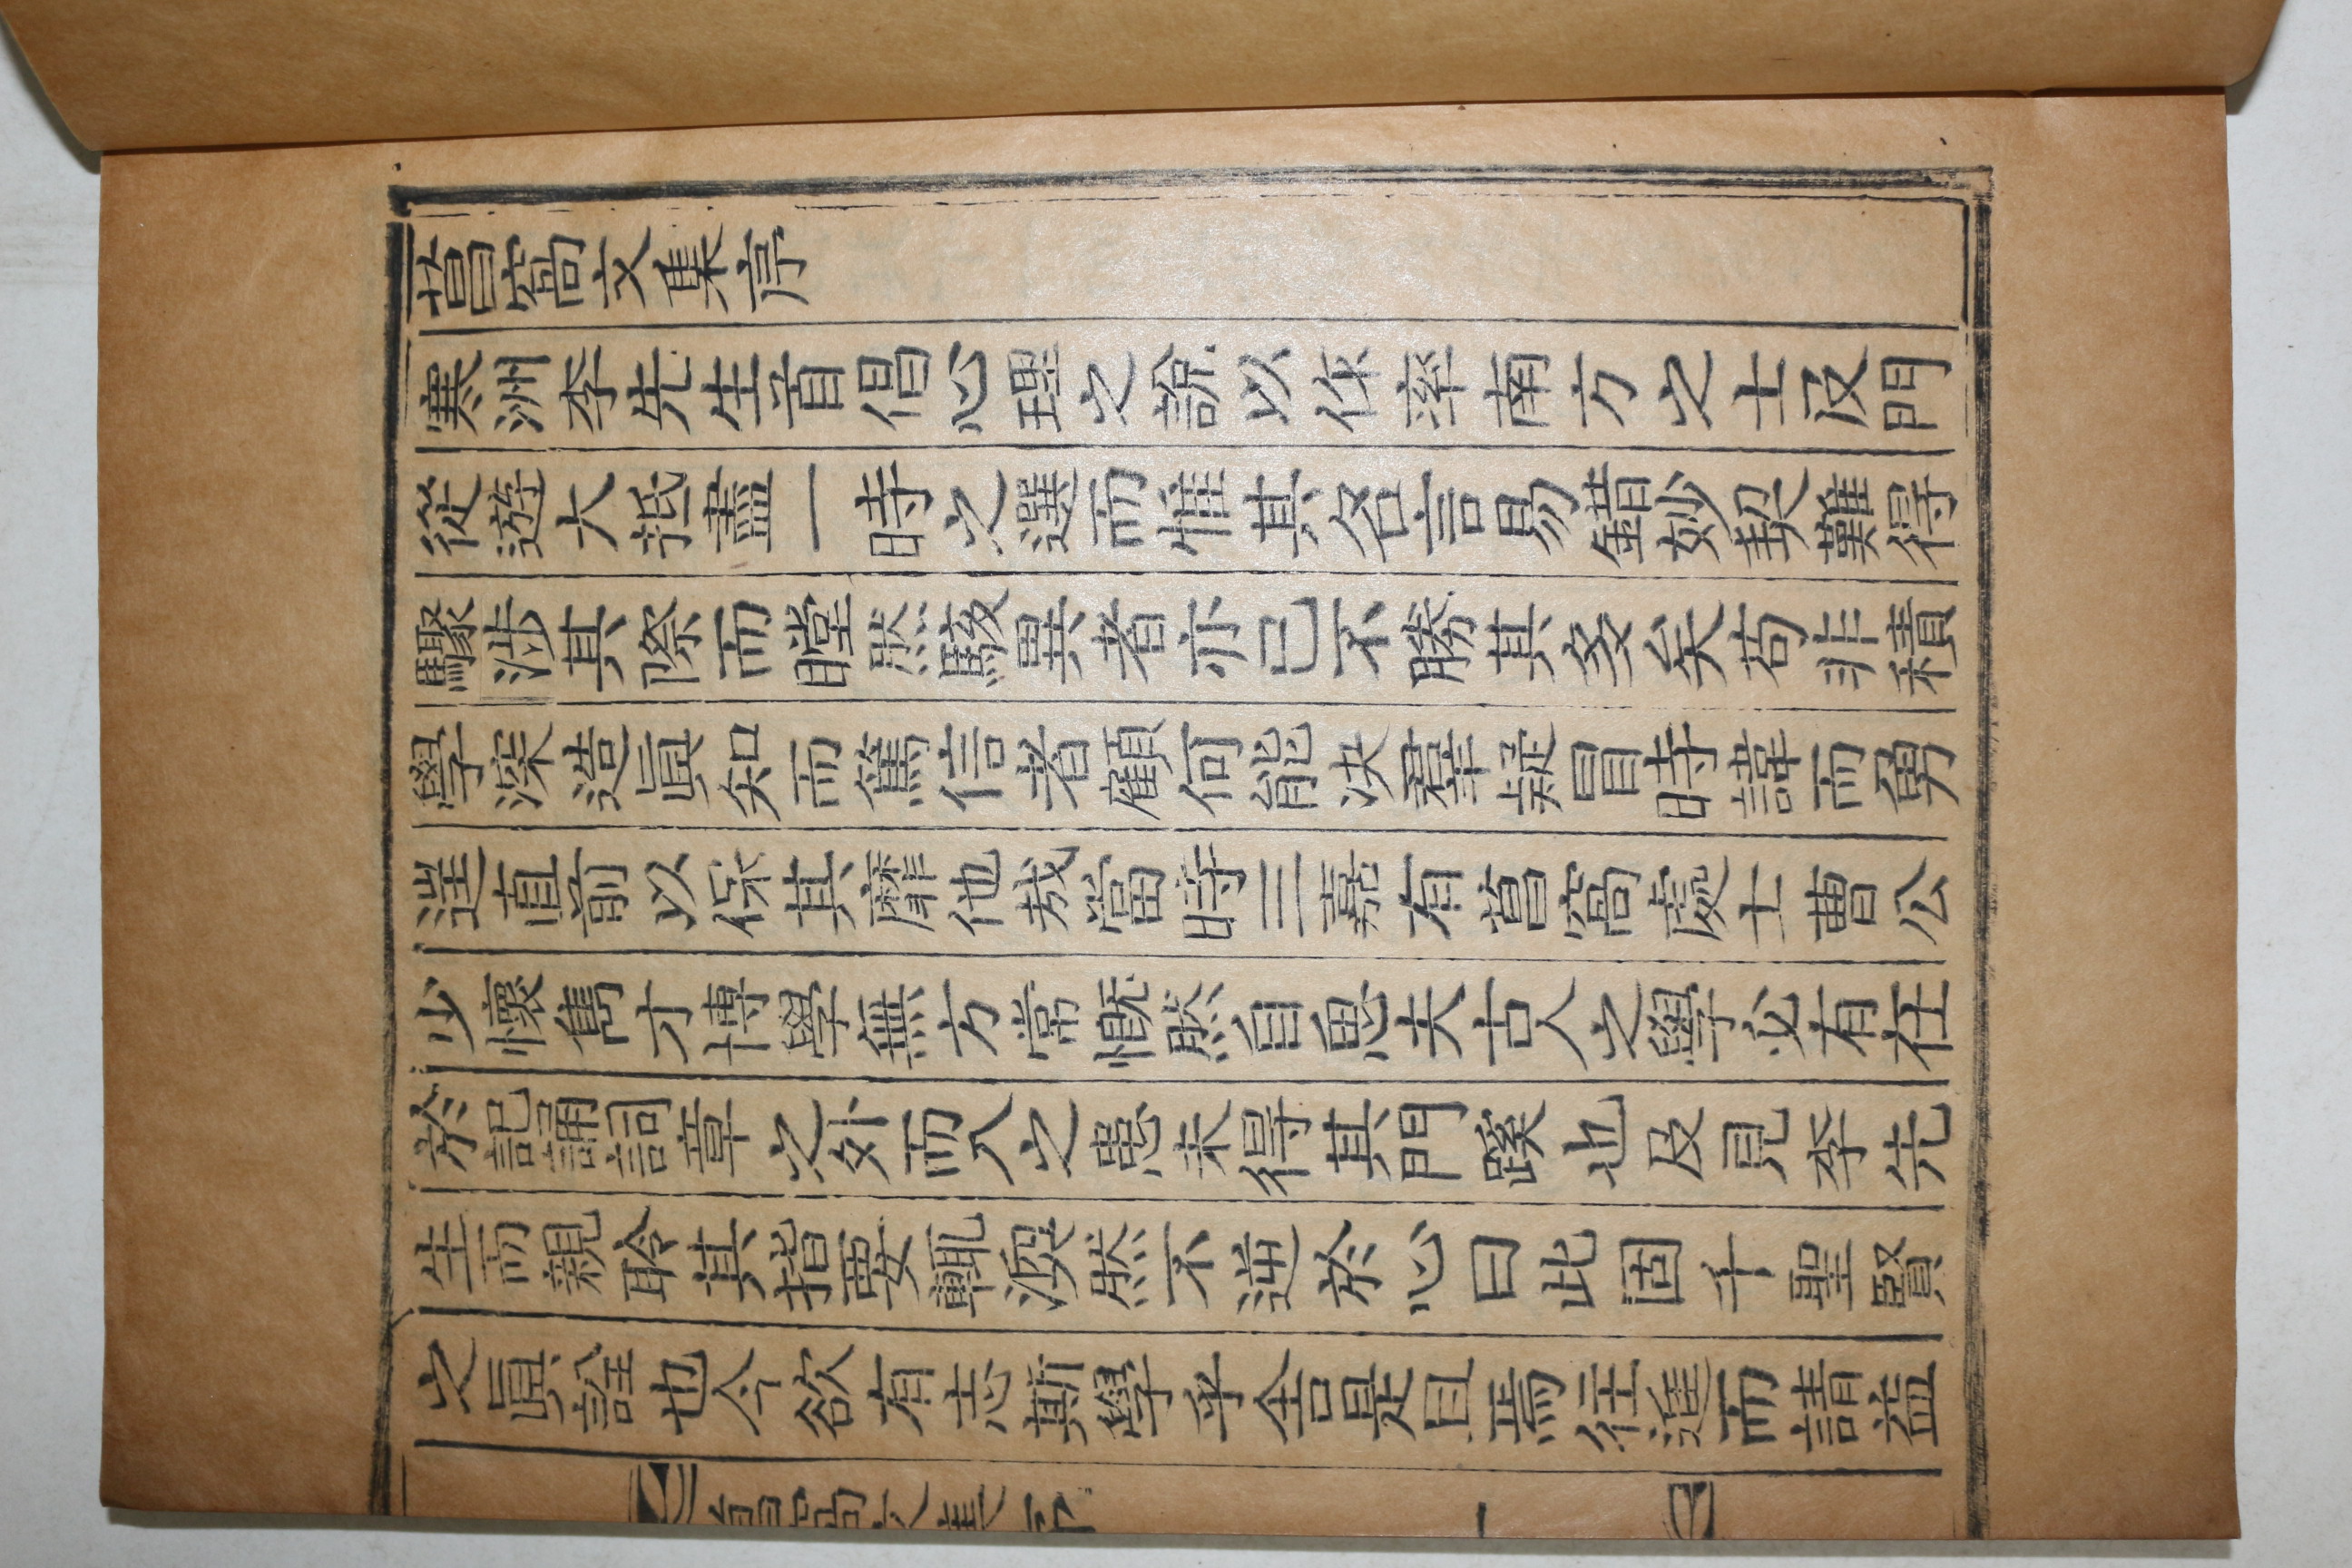 菖窩文集序
寒洲李先生首倡心理之說以作率南方之士及門
從遊大抵盡一時之選而惟其名言易錯妙契難得
驟涉其際而瞠然駭異者亦已不勝其多矣苟非積
學深造眞知而篤信者顧何能决羣疑冒時諱而勇
遑直前以保其靡他哉當時三嘉有菖窩處士曺公
少懷雋才博學無方常慨然自思夫古人之學必有在
於記誦詞章之外而入之患未得其門蹊也及見李先
生而親聆其指要輒渙然不逆於心曰此固千聖賢
之眞詮也今欲有志斯學乎舍是且焉往進而請益
菖窩文集序
一